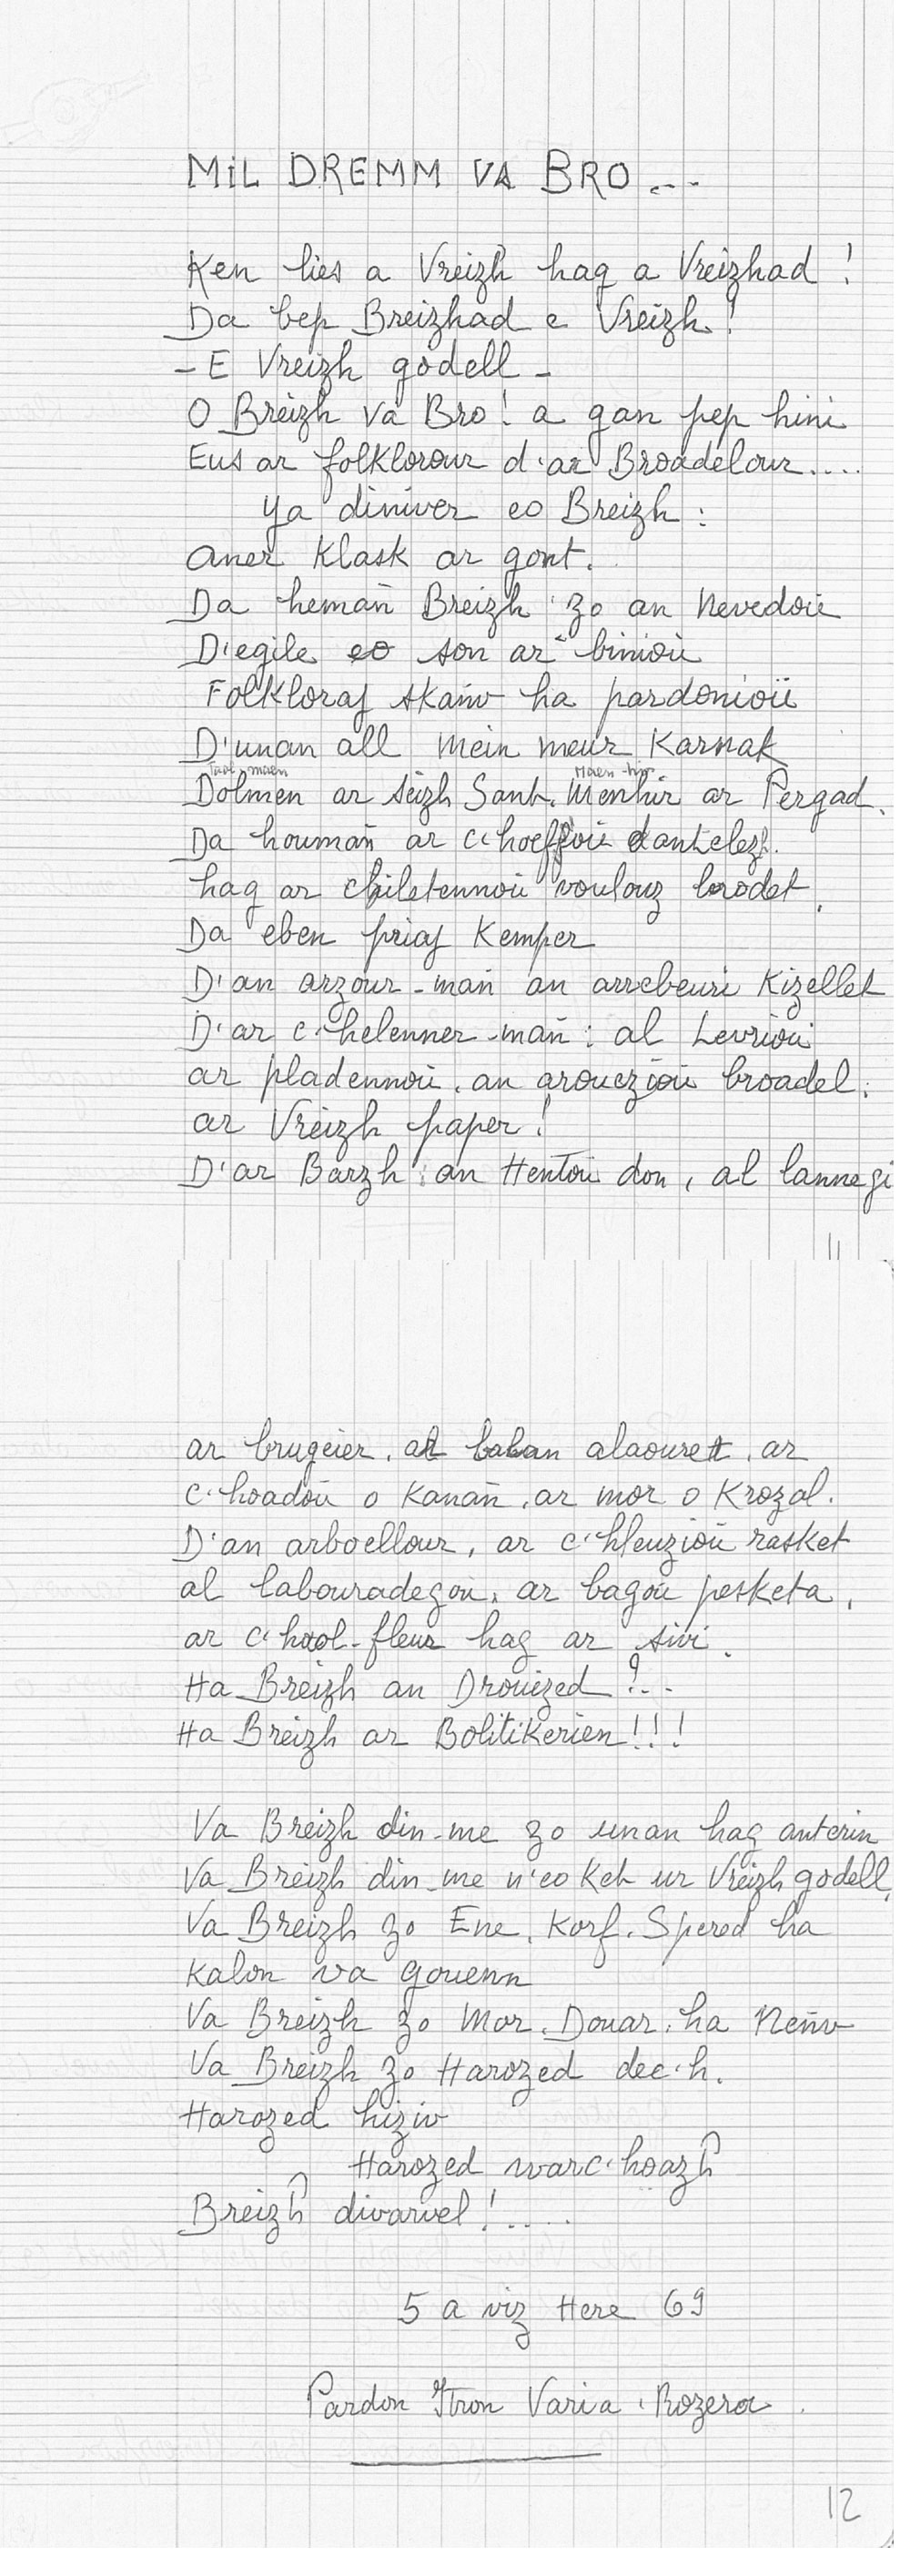 MiL DREMM VA BRO...
Ken lies a Vreizh hag a Vreizhad !
Da bep Breizhad e Vreizh !
- E Vreizh godell -
O Breizh va Bro ! a gan pep hini
Eus ar folklorour d'ar Broadelour.....
Ya diniver eo Breizh :
aner klask ar gont.
Da hemañ Breizh zo an Nevedoù
D'egile eo son ar binioù
Folkloraj skañv ha pardonioù
D'unan all Mein meur Karnak
Taol-maen Maen-hir
Dolmen ar seizh Sant. Menhir ar Pergad.
Da houmañ ar c'hoeffoù dantelezh.
hag ar chiletennoù voulouz brodet.
Da eben priaj Kemper
D'an arzour-mañ an arrebeuri Kizellet
D'ar c'helenner-mañ : al Levrioù
ar pladennoù, an arouezioù broadel.
ar Vreizh paper !
D'ar Barzh : an Hentoù don, al lannegi
11
ar brugeier, al balan alaouret, ar
c'hoadoù o Kanañ, ar mor o Krozal.
D'an arboellour, ar c'hleuzioù rasket
al labouradegoù, ar bagoù pesketa,
ar c'haol-fleur hag ar sivi.
Ha Breizh an Drouized ?...
Ha Breizh ar Bolitikerien !!!
Va Breizh din-me zo unan hag anterin
Va Breizh din-me n'eo ket ur Vreizh godell.
Va Breizh zo Ene, Korf, Spered ha
Kalon va Gouenn
Va Breizh zo Mor, Douar, ha Neñv
Va Breizh zo Harozed dec'h.
Harozed hiziv
Harozed warc'hoazh
Breizh divarvel !.....
5 a viz Here 69
Pardon Itron Varia Rozera.
12